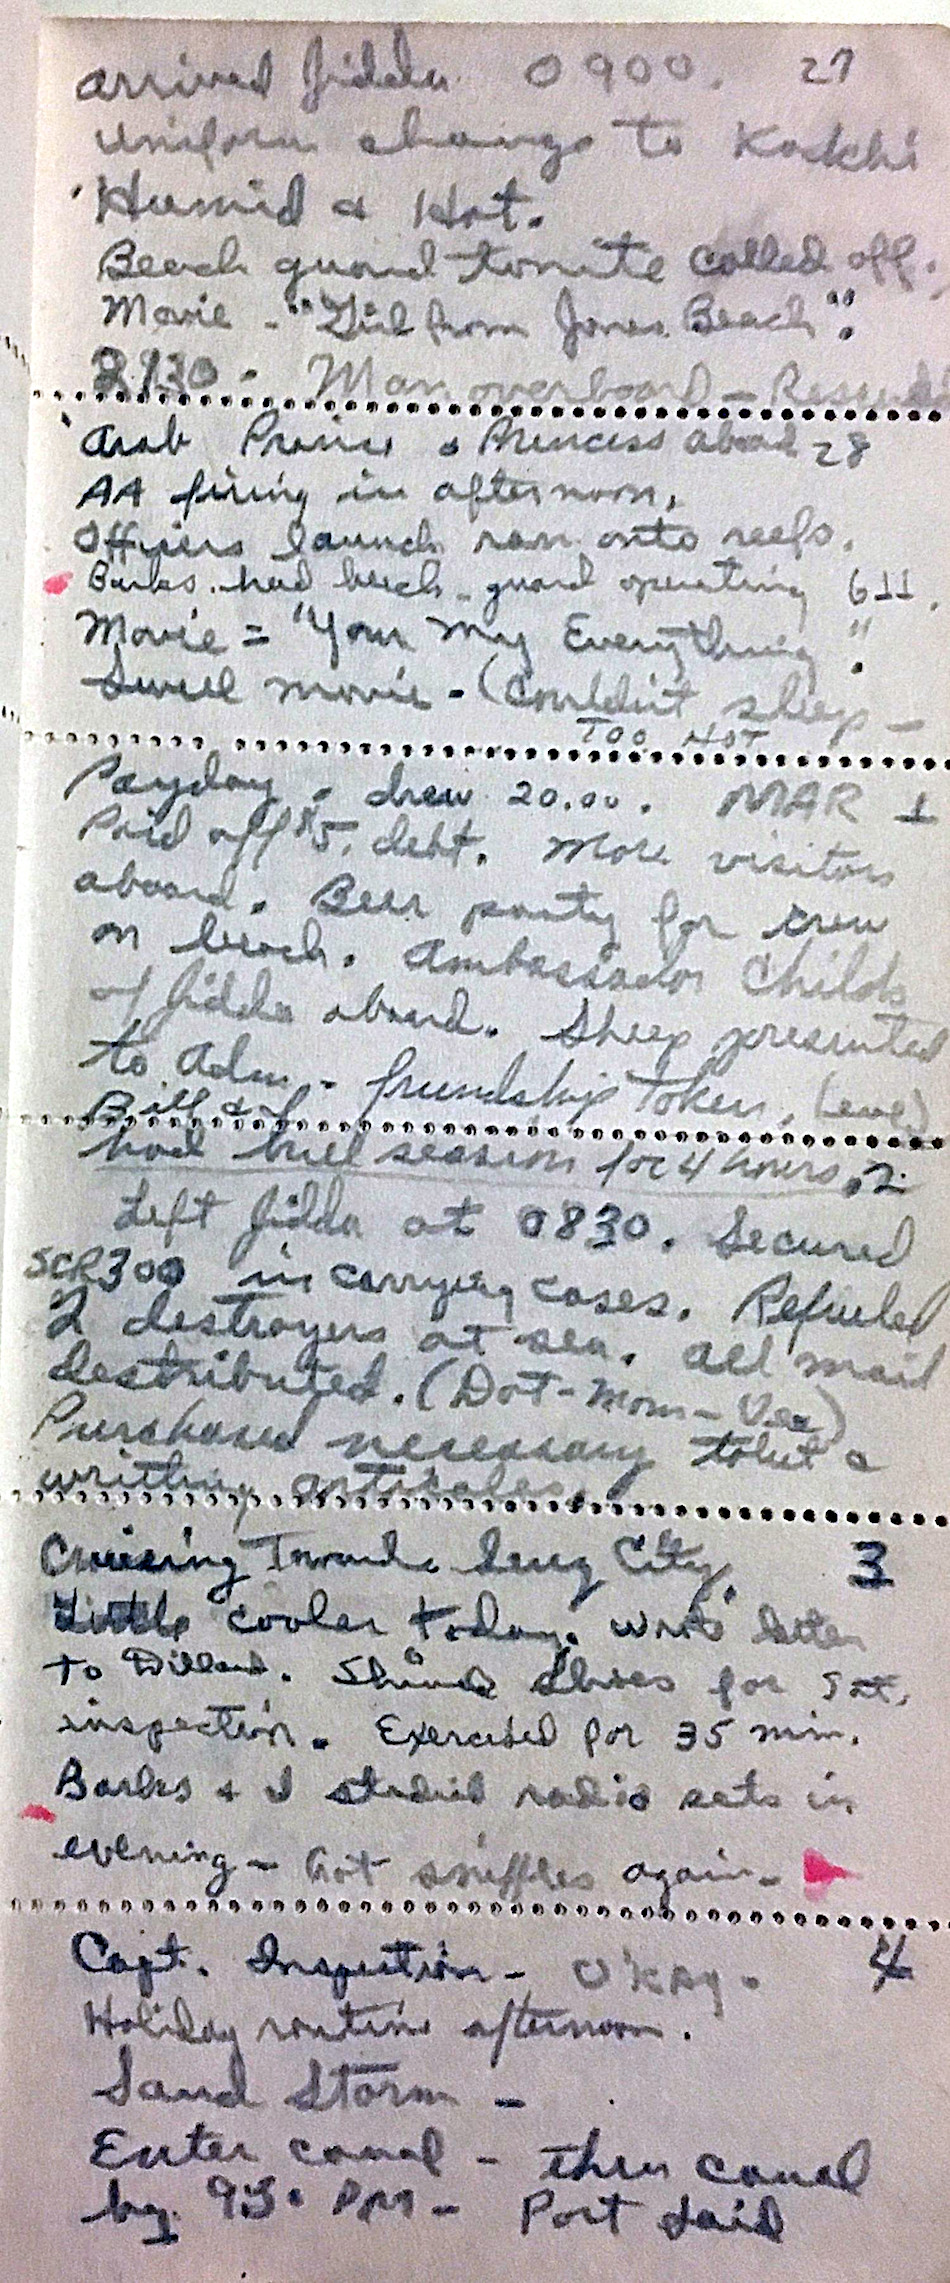 arrived Jidda 0900. 27
Uniform change to Kackhi
Humid & Hot.
Beach guard tonite called off.
Movie - "Girl from Jones Beach".
2130 - Man overboard - Rescued
Arab Prince & Princess aboad 28
AA firing in afternoon.
Officers launch ran onto reefs.
Barks. had beach guard operating 611.
Movie = "Your My Everything".
Swell movie - (Couldn't sleep -
TOO HOT
Payday. drew 20.00. MAR 1
Paid off $5. debt. More visitors
aboard. Beer party for crew
on beach. Ambassador Childs
of Jidda aboard. Sheep presented
to Adm. - friendship token. (ewe)
Bill & I
had bull session for 4 hours. 2
Left Jidda at 0830. Secured
SCR300 in carrying cases. Refueled
2 destroyers at sea. All mail
distributed. (Dot - Mom - Vee)
Purchased necessary toilet &
writing articles.
Cruising Towards Suez City. 3
Little cooler today. Wrote letter
to Dillard. Shined shoes for Sat.
inspection. Exercised for 35 min.
Barks & I studied radio sets in
evening - Got sniffles again -
Capt. Inspection - O'KAY. 4
Holiday routine afternoon.
Sand Storm -
Enter canal - thru canal
by 930 PM - Port Said